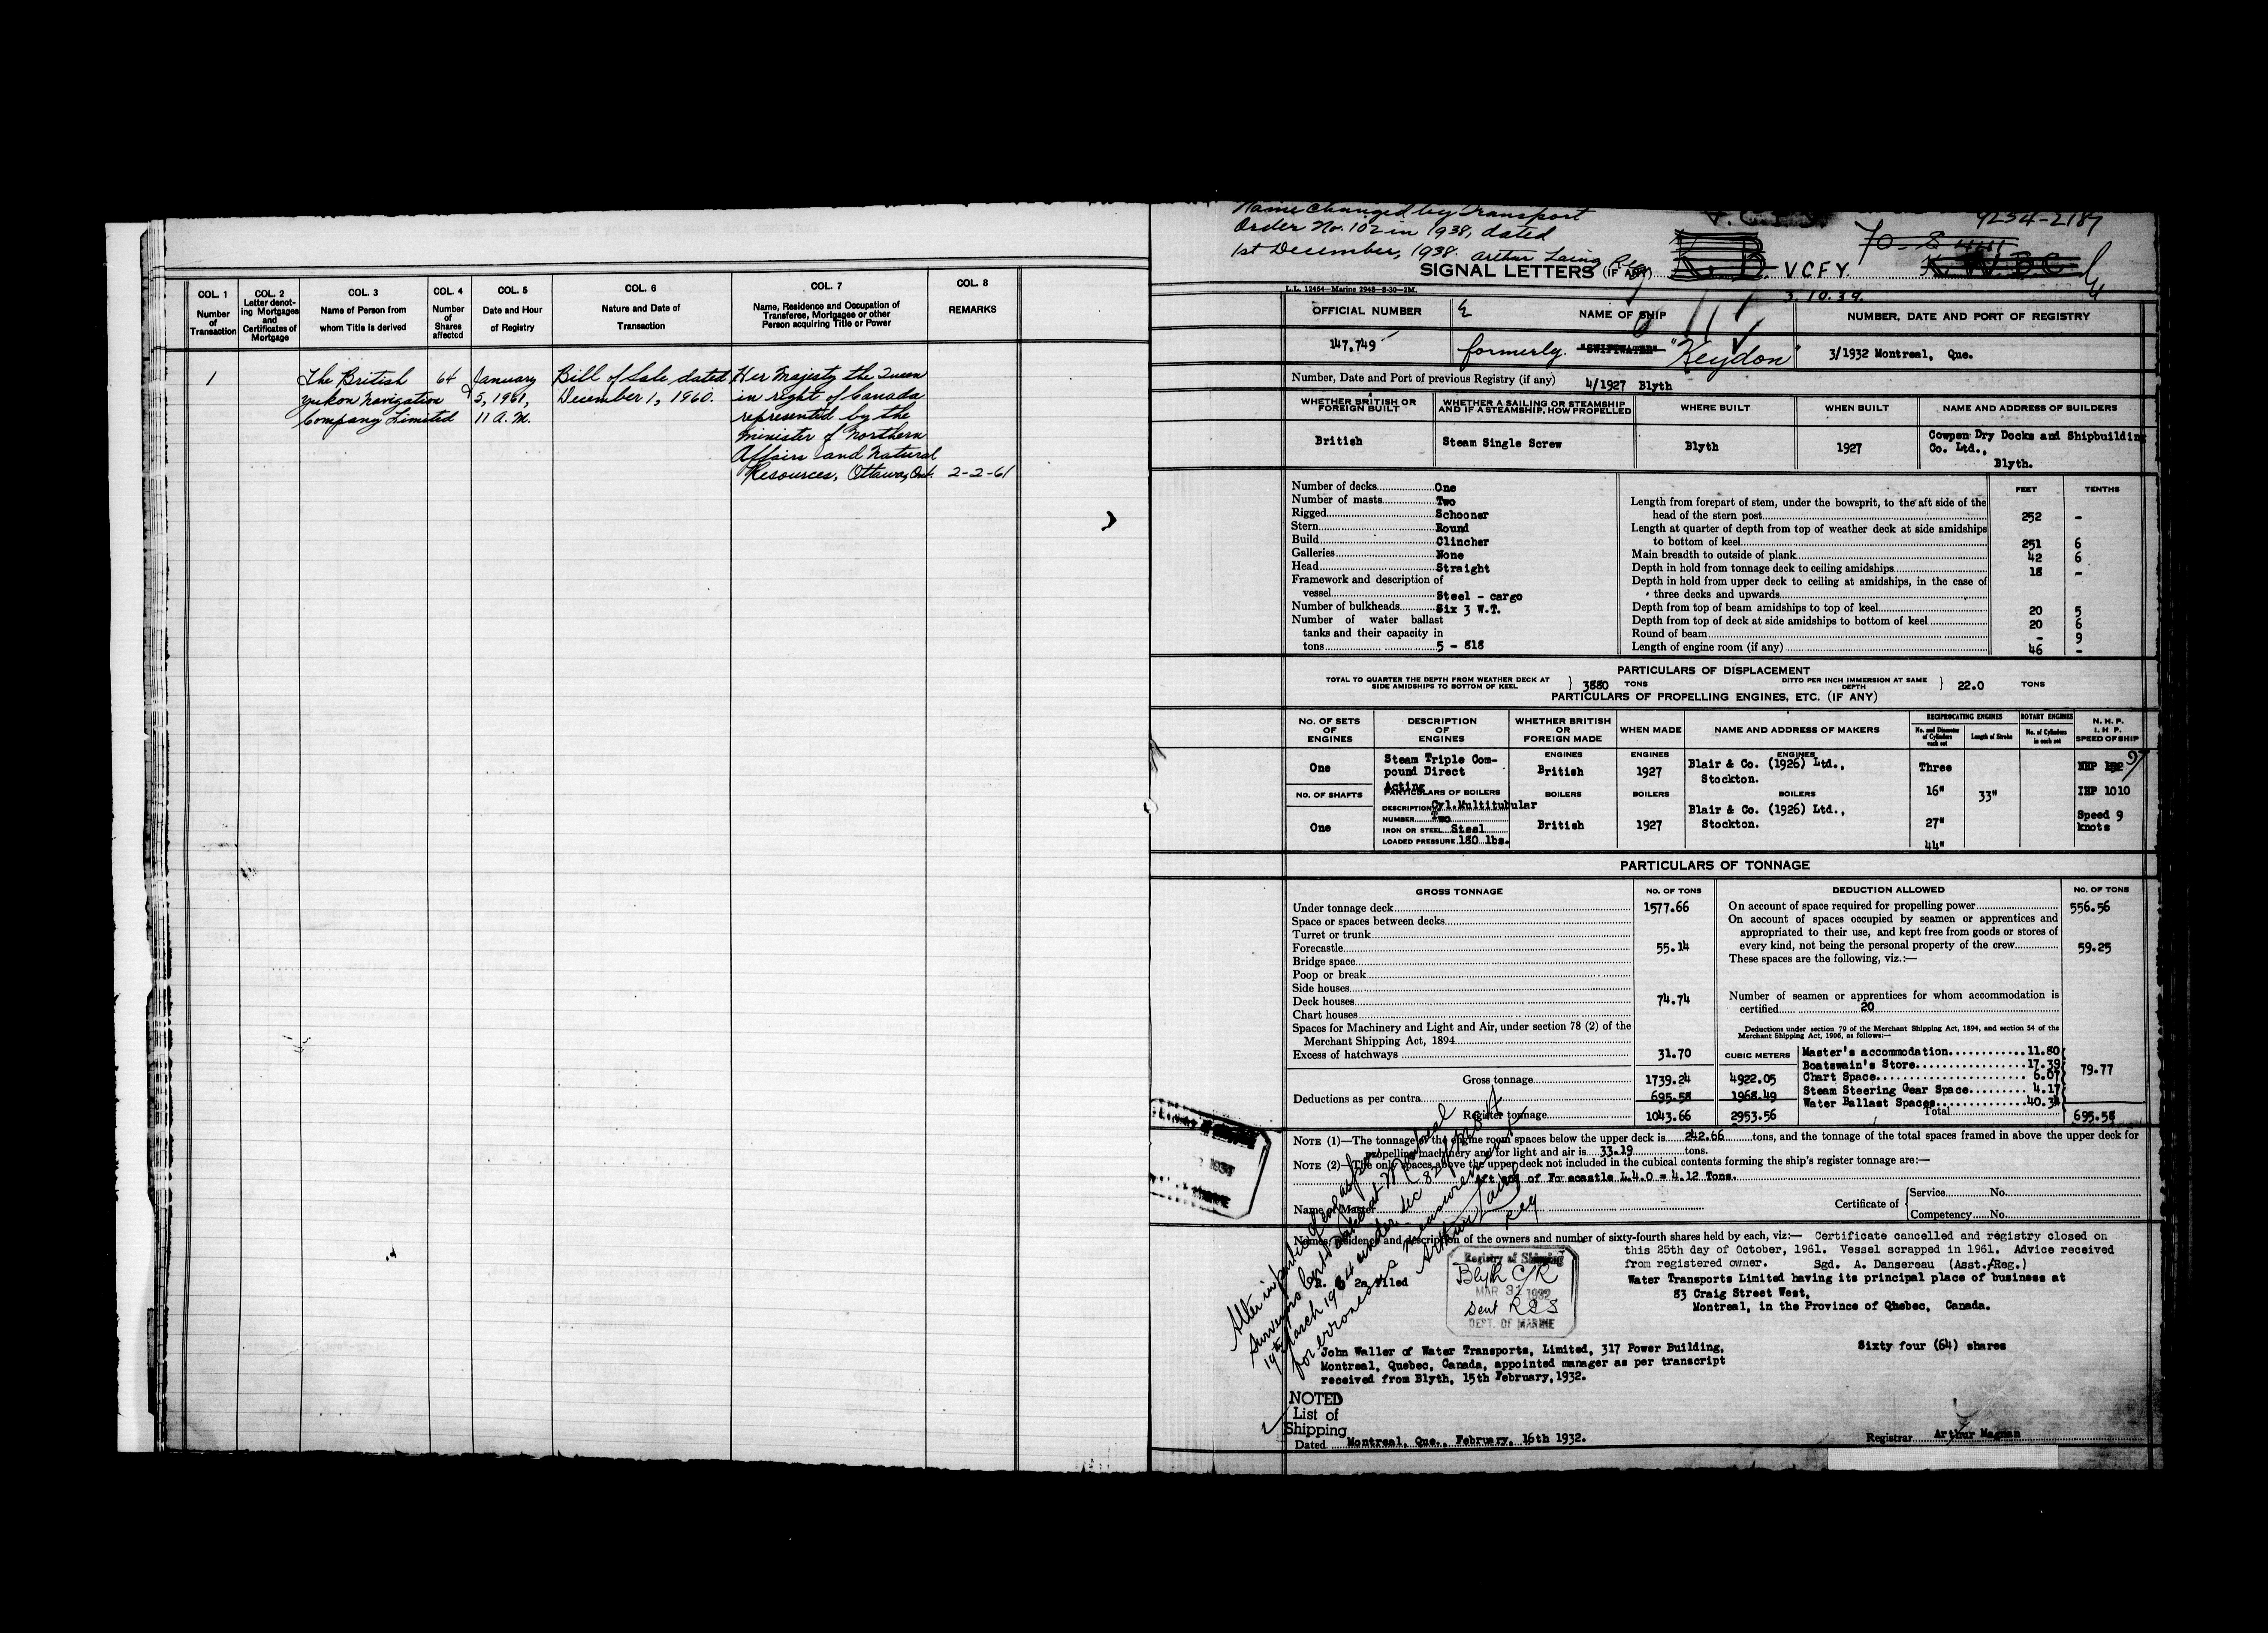 COL. 1
Number
of
Transaction
COL. 2
Letter denot-
ing Mortgages
and
Certificates of
Mortgage
COL. 3
Name of Person from
whom Title is derived
COL. 4
Number
of
Shares
affected
COL. 5
Date and Hour
of Registry
COL. 6
Nature and Date of
Transaction
COL. 7
Name, Residence and Occupation of
Transferee, Mortgagee or other
Person acquiring Title or Power
COL. 8
REMARKS
1
The British
Yukon Navigation
Company Limited
64
January
5, 1961,
11 A.M.
Bill of Sale dated
December 1, 1960.
Her Majesty the Queen
in right of Canada
represented by the
Minister of Northern
Affairs and Natural
Resources, Ottawa, Ont.
2-2-61
Name changed by Transport
Order No. 102 in 1938, dated
1st December, 1938. Arthur Laing Reg
9254-2187
SIGNAL LETTERS (IF ANY) V C F Y.
3.10.39.
L.L. 12464—Marine 2948—8-30—2M.
OFFICIAL NUMBER
NAME OF SHIP
NUMBER, DATE AND PORT OF REGISTRY
147.749
formerly "SWIFTWATER" "Keydon"
3/1932 Montreal, Que.
Number, Date and Port of previous Registry (if any) 4/1927 Blyth
WHETHER BRITISH OR
FOREIGN BUILT
WHETHER A SAILING OR STEAMSHIP
AND IF A STEAMSHIP, HOW PROPELLED
WHERE BUILT
WHEN BUILT
NAME AND ADDRESS OF BUILDERS
British
Steam Single Screw
Blyth
1927
Cowpen Dry Docks and Shipbuilding
Co. Ltd.,
Blyth.
Number of decks One
Number of masts Two
Rigged Schooner
Stern Round
Build Clincher
Galleries None
Head Straight
Framework and description of
vessel Steel - cargo
Number of bulkheads Six 3 W.T.
Number of water ballast
tanks and their capacity in
tons 5 - 818
FEET TENTHS
Length from forepart of stem, under the bowsprit, to the aft side of the
head of the stern post 252 -
Length at quarter of depth from top of weather deck at side amidships
to bottom of keel 251 6
Main breadth to outside of plank 42 6
Depth in hold from tonnage deck to ceiling amidships 18 -
Depth in hold from upper deck to ceiling at amidships, in the case of
three decks and upwards
Depth from top of beam amidships to top of keel 20 5
Depth from top of deck at side amidships to bottom of keel 20 6
Round of beam - 9
Length of engine room (if any) 46 -
PARTICULARS OF DISPLACEMENT
TOTAL TO QUARTER THE DEPTH FROM WEATHER DECK AT
SIDE AMIDSHIPS TO BOTTOM OF KEEL } 3880 TONS
DITTO PER INCH IMMERSION AT SAME
DEPTH } 22.0 TONS
PARTICULARS OF PROPELLING ENGINES, ETC. (IF ANY)
No. OF SETS
OF
ENGINES
DESCRIPTION
OF
ENGINES
WHETHER BRITISH
OR
FOREIGN MADE
WHEN MADE
NAME AND ADDRESS OF MAKERS
RECIPROCATING ENGINES
No. and Diameter
of Cylinders
each set
Length of Stroke
ROTARY ENGINES
No. of Cylinders
in each set
N. H. P.
I. H. P.
SPEED OF SHIP
One
Steam Triple Com-
pound Direct
Acting
ENGINES
British
ENGINES
1927
ENGINES
Blair & Co. (1926) Ltd.,
Stockton.
Three
16"
27"
44"
33"
97
IHP 1010
Speed 9
knots
No. OF SHAFTS
One
PARTICULARS OF BOILERS
DESCRIPTION Cyl.Multitubular
NUMBER Two
IRON OR STEEL Steel
LOADED PRESSURE 180 lbs.
BOILERS
British
BOILERS
1927
BOILERS
Blair & Co. (1926) Ltd.,
Stockton.
PARTICULARS OF TONNAGE
GROSS TONNAGE
No. OF TONS
DEDUCTION ALLOWED
No. OF TONS
Under tonnage deck 1577.66
Space or spaces between decks
Turret or trunk
Forecastle 55.14
Bridge space
Poop or break
Side houses
Deck houses 74.74
Chart houses
Spaces for Machinery and Light and Air, under section 78 (2) of the
Merchant Shipping Act, 1894
Excess of hatchways 31.70
CUBIC METERS
Gross tonnage 1739.24 4922.05
Deductions as per contra 695.58 1968.49
Register tonnage 1043.66 2953.56
On account of space required for propelling power 556.56
On account of spaces occupied by seamen or apprentices and
appropriated to their use, and kept free from goods or stores of
every kind, not being the personal property of the crew 59.25
These spaces are the following, viz.:—
Number of seamen or apprentices for whom accommodation is
certified 20
Deductions under section 79 of the Merchant Shipping Act, 1894, and section 54 of the
Merchant Shipping Act, 1906, as follows:—
Master's accommodation 11.80
Boatswain's Store 17.39
Chart Space 6.07
Steam Steering Gear Space 4.17
Water Ballast Spaces 40.34
79.77
Total 695.58
NOTE (1)—The tonnage of the engine room spaces below the upper deck is 242.66 tons, and the tonnage of the total spaces framed in above the upper deck for
propelling machinery and for light and air is 33.19 tons.
NOTE (2)—The only spaces above the upper deck not included in the cubical contents forming the ship's register tonnage are:—
Aft end of Forecastle L.4.0 = 4.12 Tons.
Name of Master
Certificate of
Service No.
Competency No.
Names, residence and description of the owners and number of sixty-fourth shares held by each, viz:— Certificate cancelled and registry closed on
this 25th day of October, 1961. Vessel scrapped in 1961. Advice received
from registered owner. Sgd. A. Dansereau (Asst./Reg.)
Water Transports Limited having its principal place of business at
83 Craig Street West,
Montreal, in the Province of Quebec, Canada.
2a Filed
Registry of Shipping
Blyth C/R
MAR 31 1932
Sent RGS
DEPT. OF MARINE
Alter in particulars as per
Surveyors Cert dated at Montreal
19th March 1934 under Sec 82 of MSA
for erroneous measurement
Arthur Laing
Reg
John Waller of Water Transports, Limited, 317 Power Building,
Montreal, Quebec, Canada, appointed manager as per transcript
received from Blyth, 15th February, 1932.
Sixty four (64) shares
NOTED
List of
Shipping
Dated Montreal, Que., February, 16th 1932.
Registrar Arthur Magnan